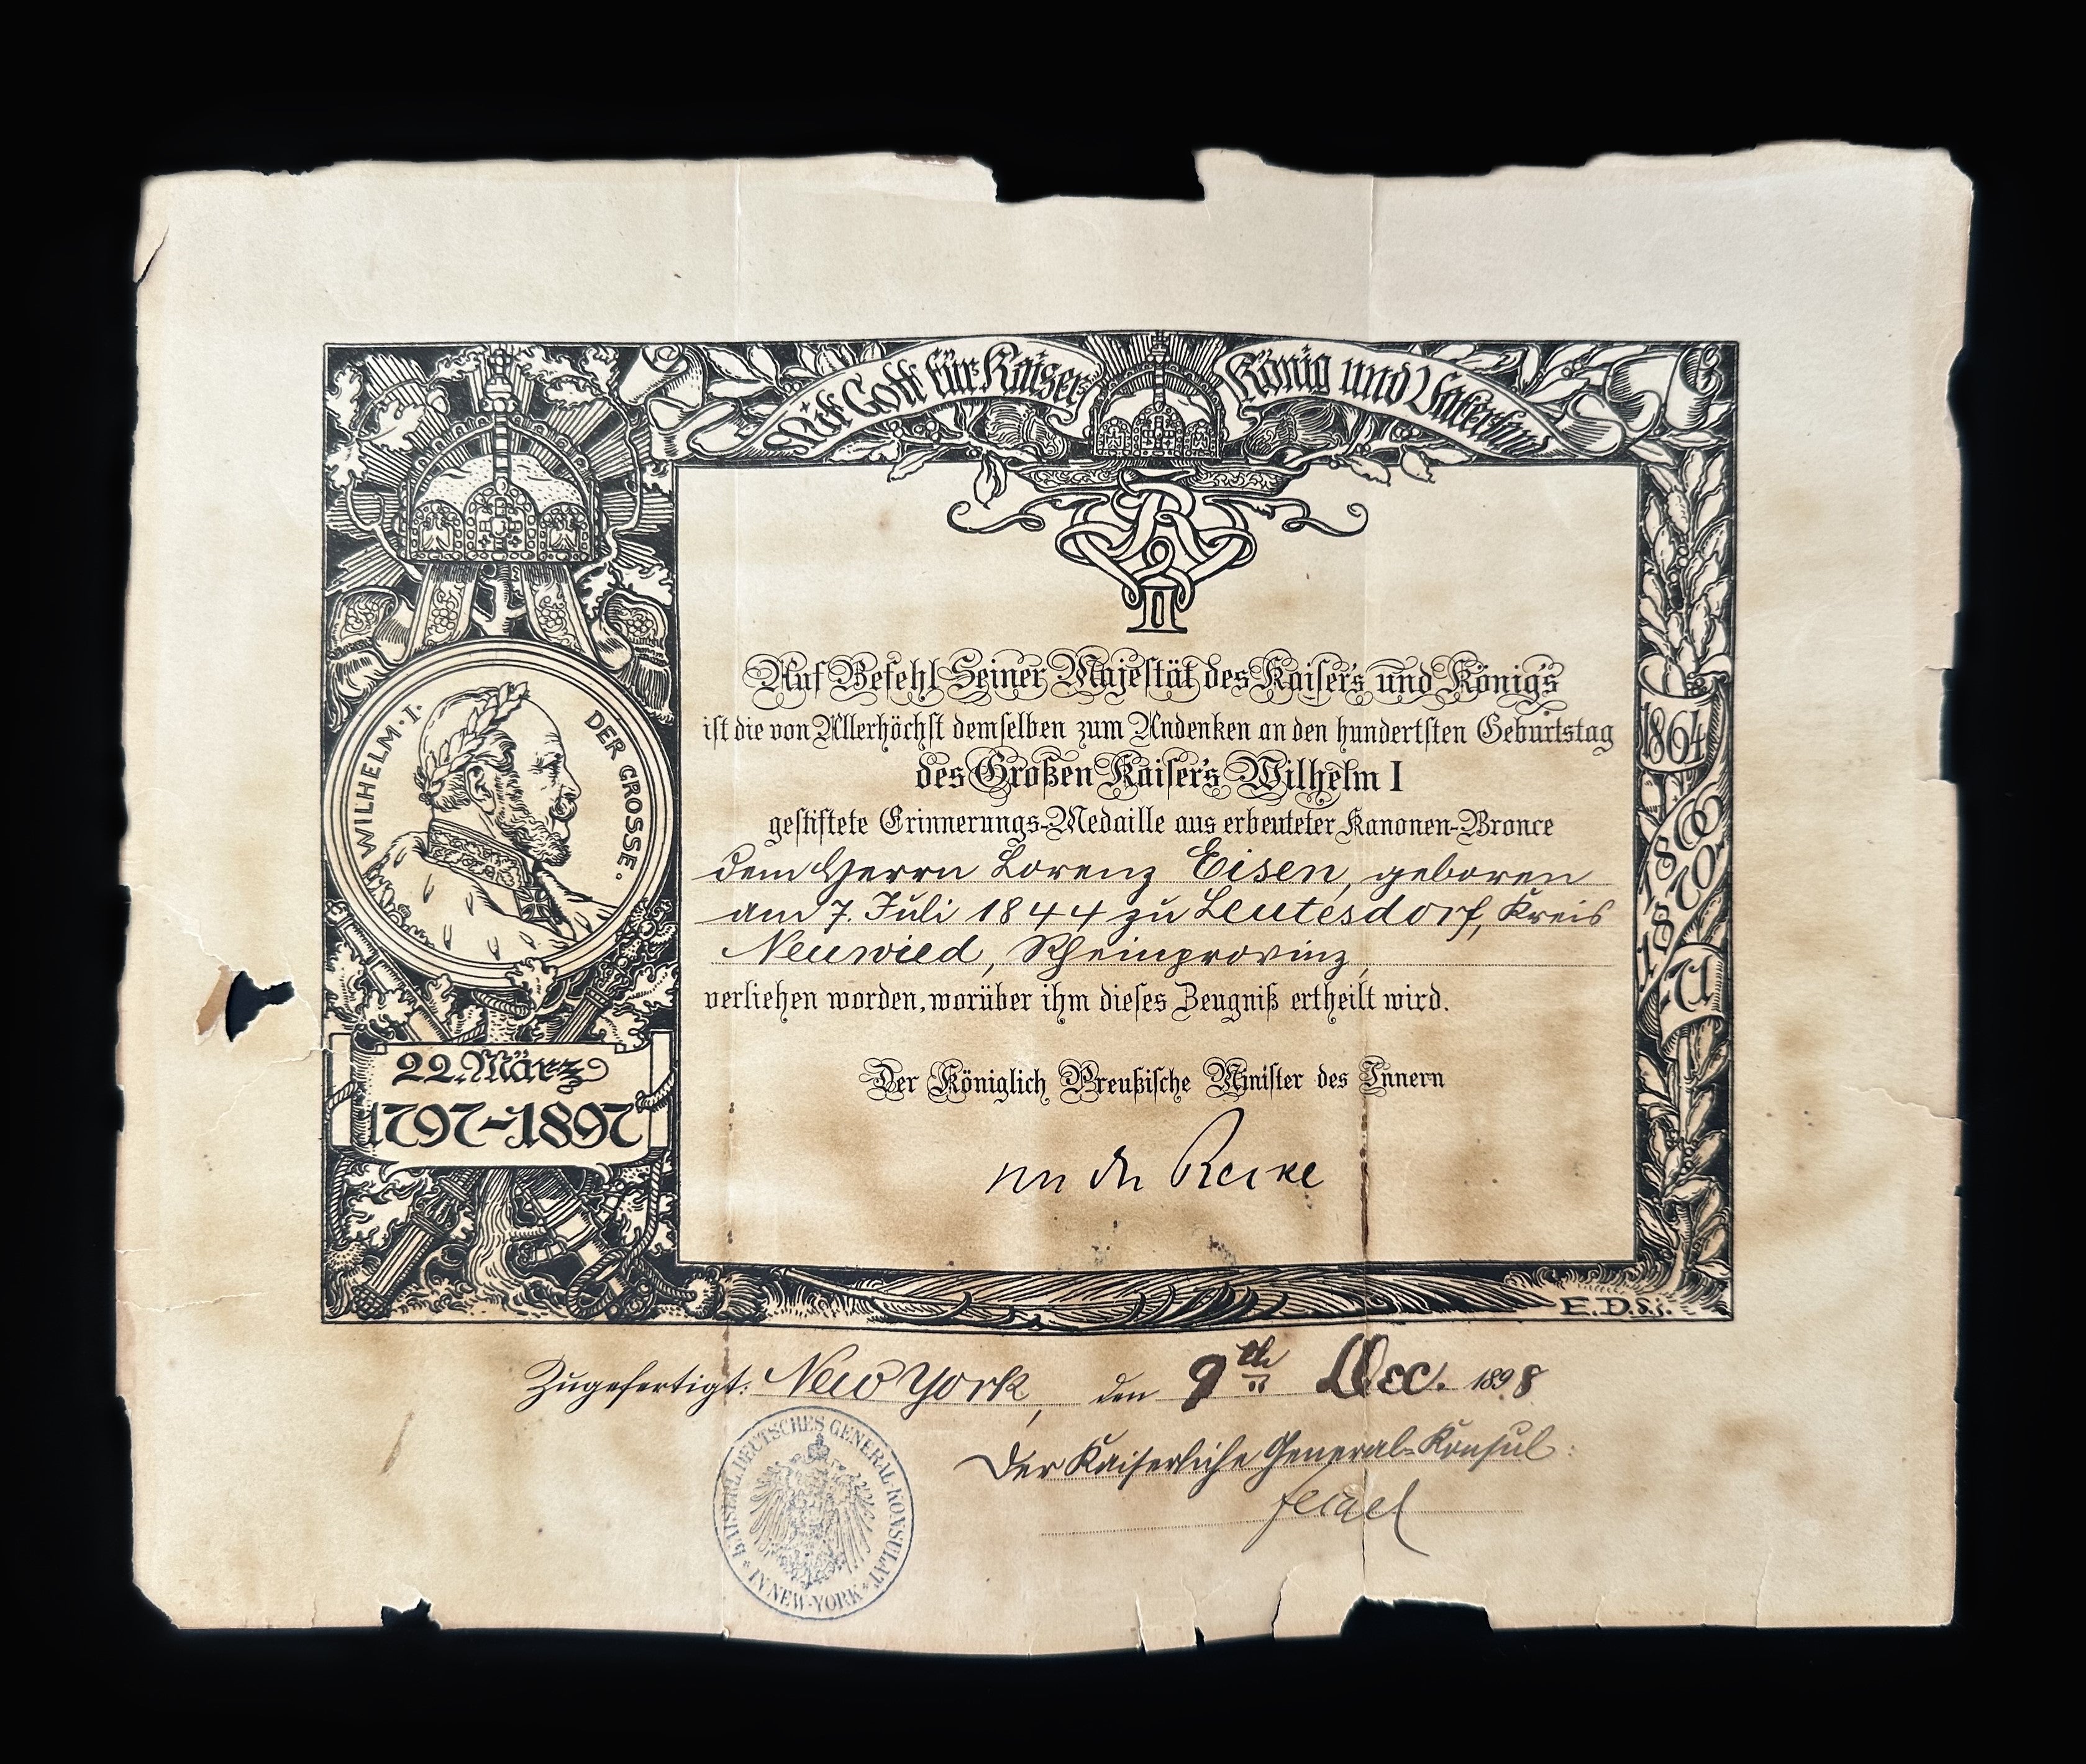 Mit Gott für Kaiser König und Vaterland
WILHELM·I· DER GROSSE·
22. März
1797-1897
1864
1866
1870
1871
Auf Befehl Seiner Majestät des Kaisers und Königs
ist die von Allerhöchst demselben zum Andenken an den hundertsten Geburtstag
des Großen Kaisers Wilhelm I
gestiftete Erinnerungs-Medaille aus erbeuteter Kanonen-Bronce
dem Herrn Lorenz Eisen, geboren
am 7. Juli 1844 zu Leutesdorf, Kreis
Neuwied, Rheinprovinz,
verliehen worden, worüber ihm dieses Zeugniß ertheilt wird.
Der Königlich Preußische Minister des Innern
von der Recke
E.D.
Zugefertigt: New York, den 9th Dec. 1898
Der Kaiserliche General-Konsul:
KAISERL. DEUTSCHES GENERAL-KONSULAT
IN NEW-YORK